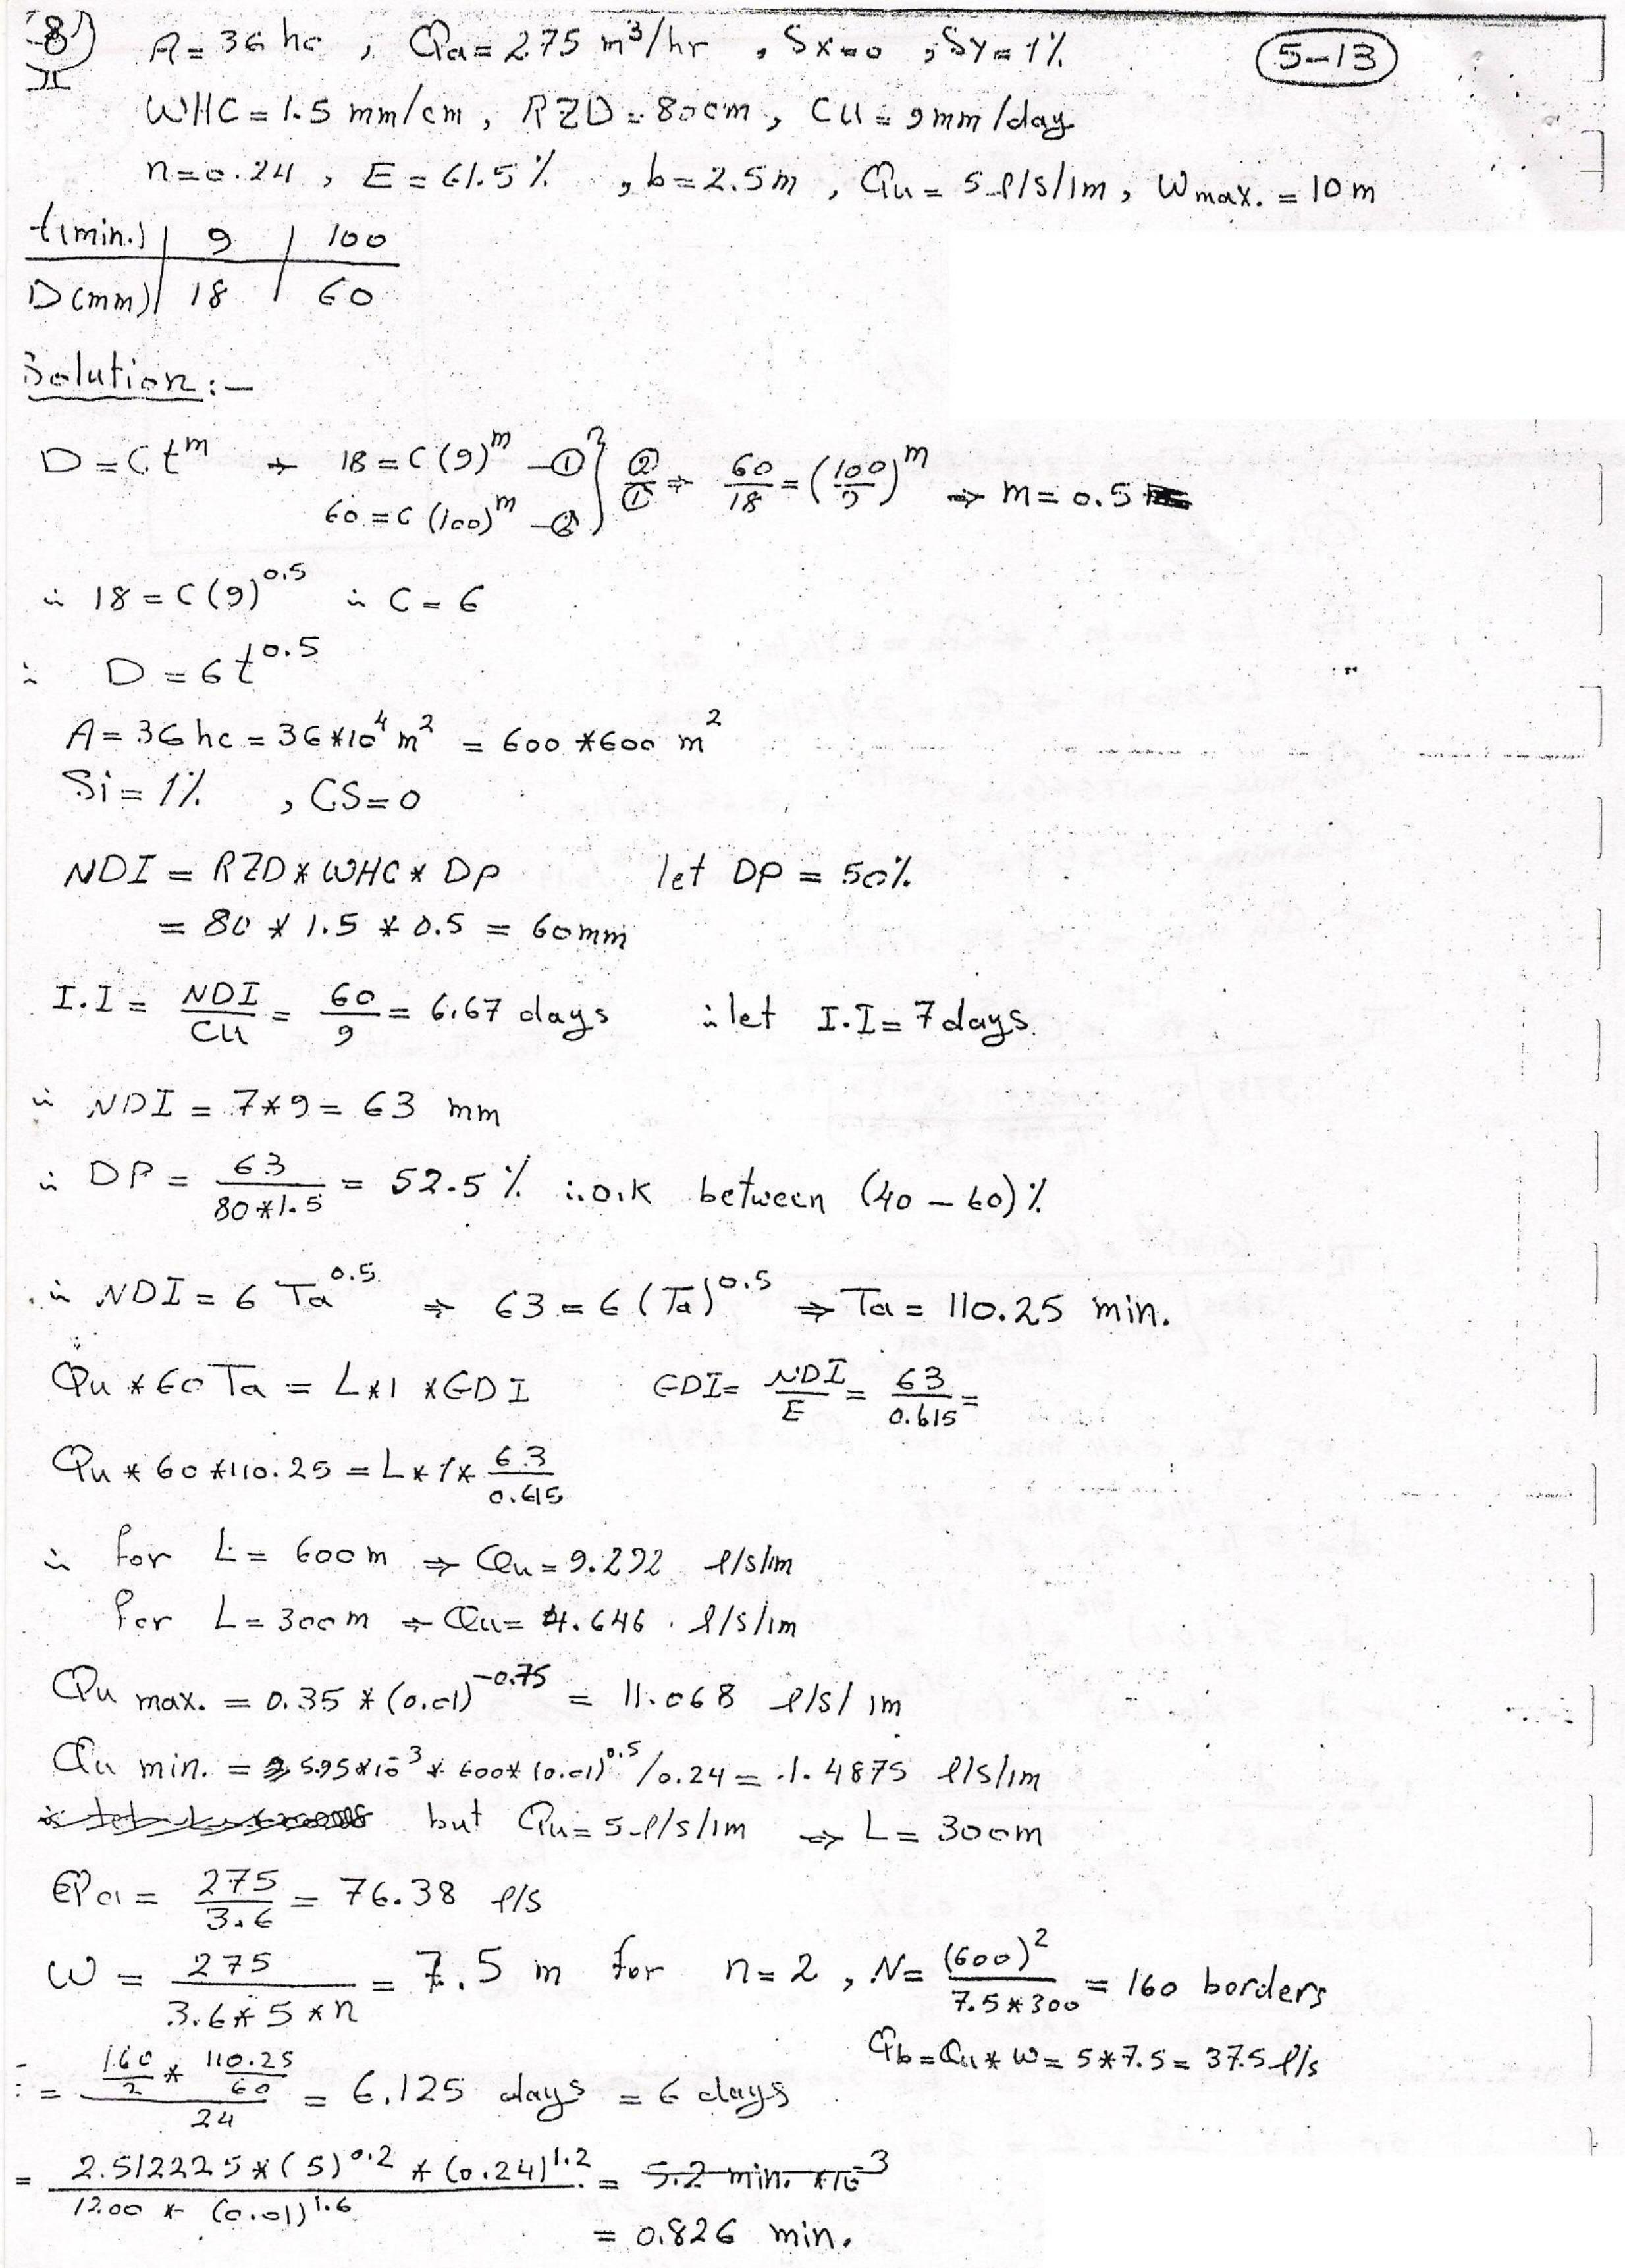 8) A = 36 hc , Qa = 275 m³/hr , Sx = 0 , Sy = 1%
5-13
WHC = 1.5 mm/cm , RZD = 80 cm , CU = 9 mm/day
n = 0.24 , E = 61.5% , b = 2.5 m , Qu = 5 l/s/1m , Wmax. = 10 m
t(min.) | 9 | 100
D(mm) | 18 | 60
Solution :-
D = C t^m → 18 = C (9)^m -① } ②/① ⇒ 60/18 = (100/9)^m ⇒ m = 0.5
60 = C (100)^m -②
∴ 18 = C (9)^0.5 ∴ C = 6
∴ D = 6 t^0.5
A = 36 hc = 36 * 10⁴ m² = 600 * 600 m²
Si = 1% , CS = 0
NDI = RZD * WHC * DP let DP = 50%
= 80 * 1.5 * 0.5 = 60 mm
I.I = NDI/CU = 60/9 = 6.67 days ∴ let I.I = 7 days.
∴ NDI = 7 * 9 = 63 mm
∴ DP = 63/(80 * 1.5) = 52.5% ∴ o.k between (40 – 60)%
∴ NDI = 6 Ta^0.5 ⇒ 63 = 6 (Ta)^0.5 ⇒ Ta = 110.25 min.
Qu * 60 Ta = L * 1 * GDI GDI = NDI/E = 63/0.615 =
Qu * 60 * 110.25 = L * 1 * 63/0.615
∴ for L = 600 m ⇒ Qu = 9.292 l/s/1m
for L = 300 m ⇒ Qu = 4.646 l/s/1m
Qu max. = 0.35 * (0.01)^-0.75 = 11.068 l/s/1m
Qu min. = 5.95 * 10^-3 * 600 * (0.01)^0.5 / 0.24 = 1.4875 l/s/1m
but Qu = 5 l/s/1m ⇒ L = 300 m
Qa = 275/3.6 = 76.38 l/s
W = 275/(3.6 * 5 * n) = 7.5 m for n = 2 , N = (600)²/(7.5 * 300) = 160 borders
Qb = Qu * W = 5 * 7.5 = 37.5 l/s
= (160/2 * 110.25/60)/24 = 6.125 days = 6 days
= 2.512225 * (5)^0.2 * (0.24)^1.2 / (1200 * (0.01)^1.6) = 5.2 min. * 10^-3
= 0.826 min.